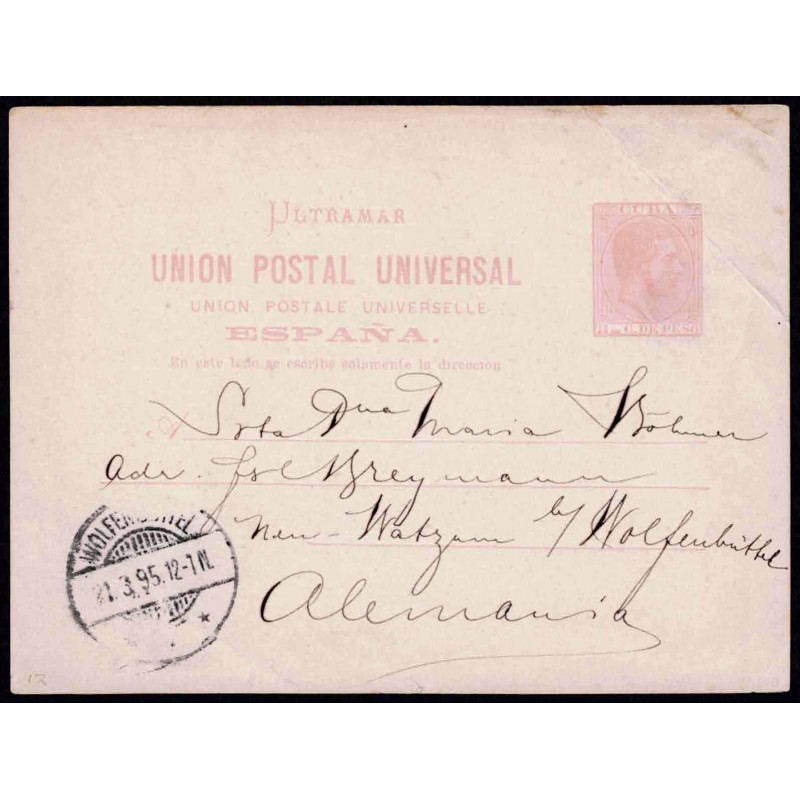 ULTRAMAR
UNION POSTAL UNIVERSAL
UNION POSTALE UNIVERSELLE
ESPAÑA.
En este lado se escribe solamente la direccion
CUBA
C. DE PESO
A Srta Dna Maria Böhmer
Adr. Frl Breymann
Neu-Watzum b/ Wolfenbüttel
Alemania
WOLFENBÜTTEL
21.3.95.12-1N.
* *
12